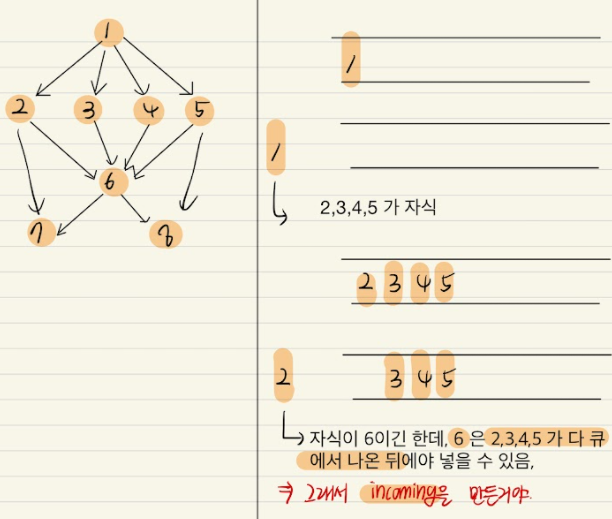 1
2 3 4 5
6
7 8
1
1
2,3,4,5 가 자식
2 3 4 5
2 3 4 5
자식이 6이긴 한데, 6 은 2,3,4,5 가 다 큐
에서 나온 뒤에야 넣을 수 있음,
⇒ 그래서 incoming을 만든거야.